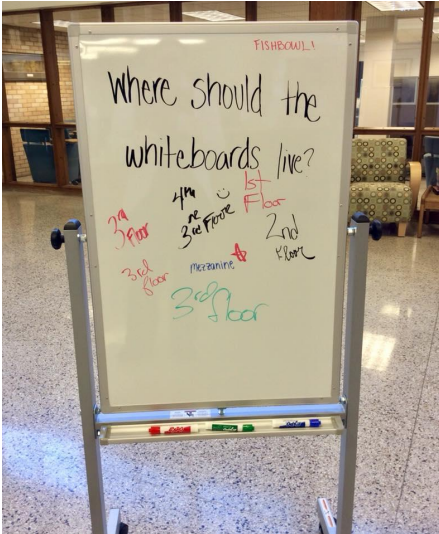 FISHBOWL!
Where should the
whiteboards live?
1st
Floor
4th
or
3rd Floor
3rd
Floor
2nd
Floor
3rd
floor
mezzanine
3rd floor